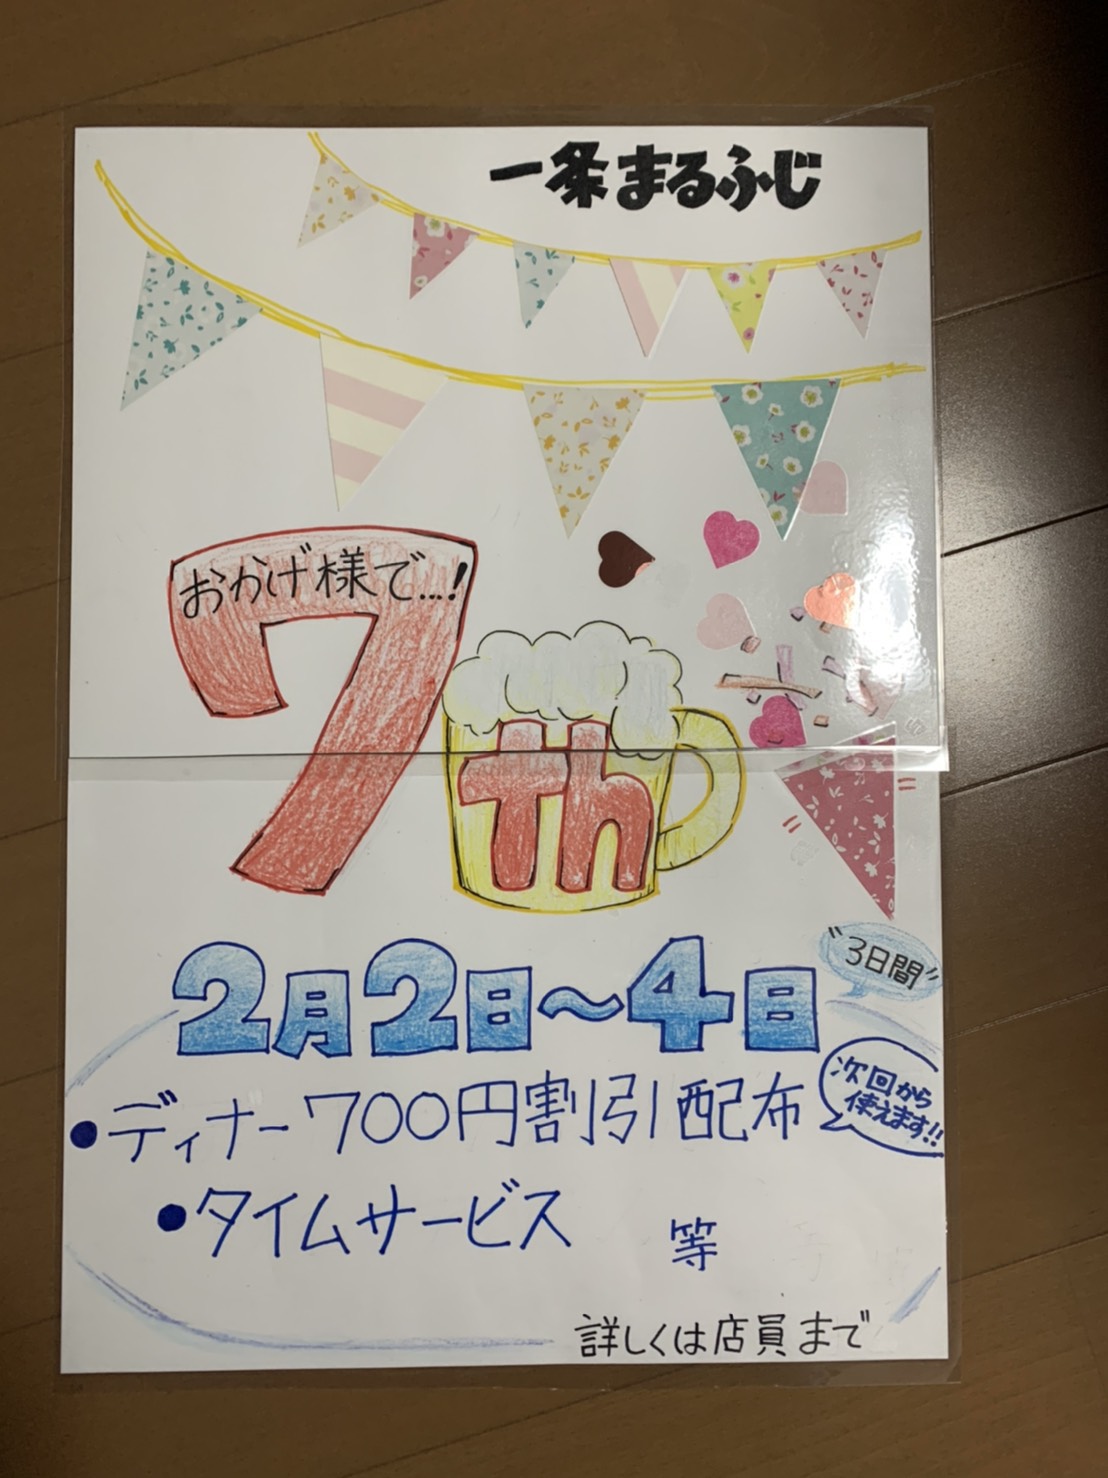 一条まるふじ
おかげ様で…!
7th
2月2日〜4日
"3日間"
•ディナー700円割引配布
次回から
使えます!!
•タイムサービス 等
詳しくは店員まで